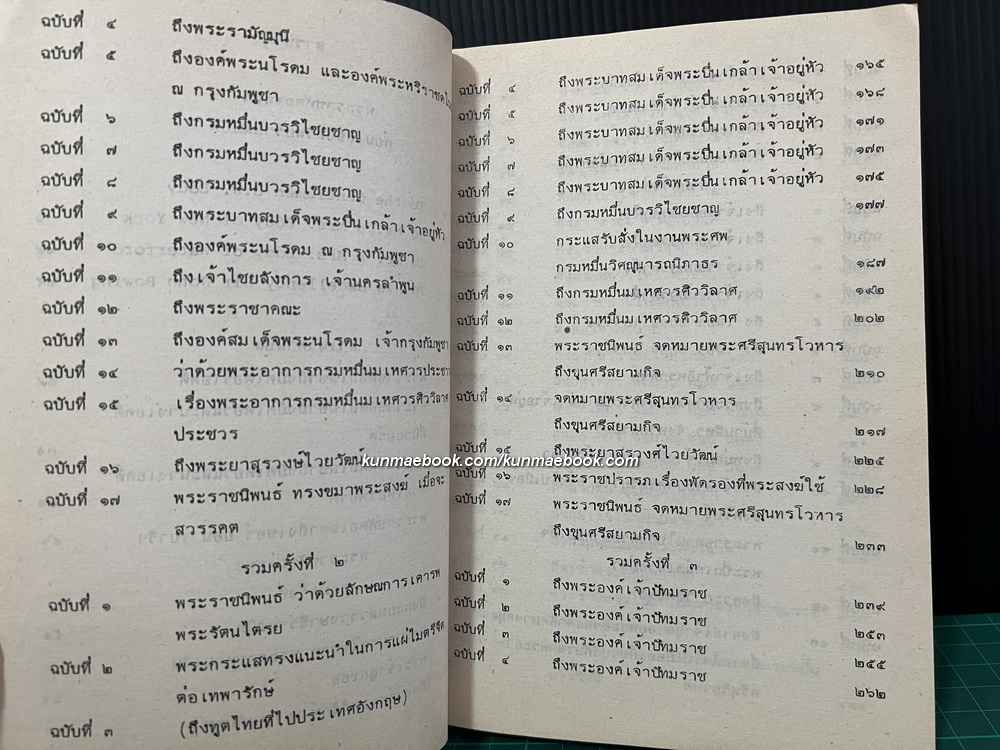 ฉบับที่ ๔ ถึงพระรามัญมุนี
ฉบับที่ ๕ ถึงองค์พระนโรดม และองค์พระหริราช
ณ กรุงกัมพูชา
ฉบับที่ ๖ ถึงกรมหมื่นบวรวิไชยชาญ
ฉบับที่ ๗ ถึงกรมหมื่นบวรวิไชยชาญ
ฉบับที่ ๘ ถึงกรมหมื่นบวรวิไชยชาญ
ฉบับที่ ๙ ถึงพระบาทสมเด็จพระปิ่นเกล้าเจ้าอยู่หัว
ฉบับที่ ๑๐ ถึงองค์พระนโรดม ณ กรุงกัมพูชา
ฉบับที่ ๑๑ ถึงเจ้าไชยลังการ เจ้านครลำพูน
ฉบับที่ ๑๒ ถึงพระราชาคณะ
ฉบับที่ ๑๓ ถึงองค์สมเด็จพระนโรดม เจ้ากรุงกัมพูชา
ฉบับที่ ๑๔ ว่าด้วยพระอาการกรมหมื่นมเหศวรประชวร
ฉบับที่ ๑๕ เรื่องพระอาการกรมหมื่นมเหศวรศิววิลาศ
ประชวร
ฉบับที่ ๑๖ ถึงพระยาสุรวงษ์ไวยวัฒน์
ฉบับที่ ๑๗ พระราชนิพนธ์ ทรงขมาพระสงฆ์ เมื่อจะ
สวรรคต
รวมครั้งที่ ๒
ฉบับที่ ๑ พระราชนิพนธ์ ว่าด้วยลักษณการเคารพ
พระรัตนไตรย
ฉบับที่ ๒ พระกระแสทรงแนะนำในการแผ่ไมตรีจิต
ต่อเทพารักษ์
ฉบับที่ ๓ (ถึงทูตไทยที่ไปประเทศอังกฤษ)
ฉบับที่ ๔ ถึงพระบาทสมเด็จพระปิ่นเกล้าเจ้าอยู่หัว ๑๖๕
ฉบับที่ ๕ ถึงพระบาทสมเด็จพระปิ่นเกล้าเจ้าอยู่หัว ๑๖๘
ฉบับที่ ๖ ถึงพระบาทสมเด็จพระปิ่นเกล้าเจ้าอยู่หัว ๑๗๑
ฉบับที่ ๗ ถึงพระบาทสมเด็จพระปิ่นเกล้าเจ้าอยู่หัว ๑๗๓
ฉบับที่ ๘ ถึงพระบาทสมเด็จพระปิ่นเกล้าเจ้าอยู่หัว ๑๗๕
ฉบับที่ ๙ ถึงกรมหมื่นบวรวิไชยชาญ ๑๗๗
ฉบับที่ ๑๐ กระแสรับสั่งในงานพระศพ
กรมหมื่นวิศณุนารถนิภาธร ๑๘๗
ฉบับที่ ๑๑ ถึงกรมหมื่นมเหศวรศิววิลาศ ๑๙๒
ฉบับที่ ๑๒ ถึงกรมหมื่นมเหศวรศิววิลาศ ๒๐๒
ฉบับที่ ๑๓ พระราชนิพนธ์ จดหมายพระศรีสุนทรโวหาร
ถึงขุนศรีสยามกิจ ๒๑๐
ฉบับที่ ๑๔ จดหมายพระศรีสุนทรโวหาร
ถึงขุนศรีสยามกิจ ๒๑๗
ฉบับที่ ๑๕ ถึงพระยาสุรวงศ์ไวยวัฒน์ ๒๒๕
kunmaebook.com/kunmaebook.com
ฉบับที่ ๑๖ พระราชปรารภเรื่องพัดรองที่พระสงฆ์ใช้ ๒๒๘
ฉบับที่ ๑๗ พระราชนิพนธ์ จดหมายพระศรีสุนทรโวหาร
ถึงขุนศรีสยามกิจ ๒๓๓
รวมครั้งที่ ๓
ฉบับที่ ๑ ถึงพระองค์เจ้าปัทมราช ๒๓๙
ฉบับที่ ๒ ถึงพระองค์เจ้าปัทมราช ๒๕๓
ฉบับที่ ๓ ถึงพระองค์เจ้าปัทมราช ๒๕๕
ฉบับที่ ๔ ถึงพระองค์เจ้าปัทมราช ๒๖๒